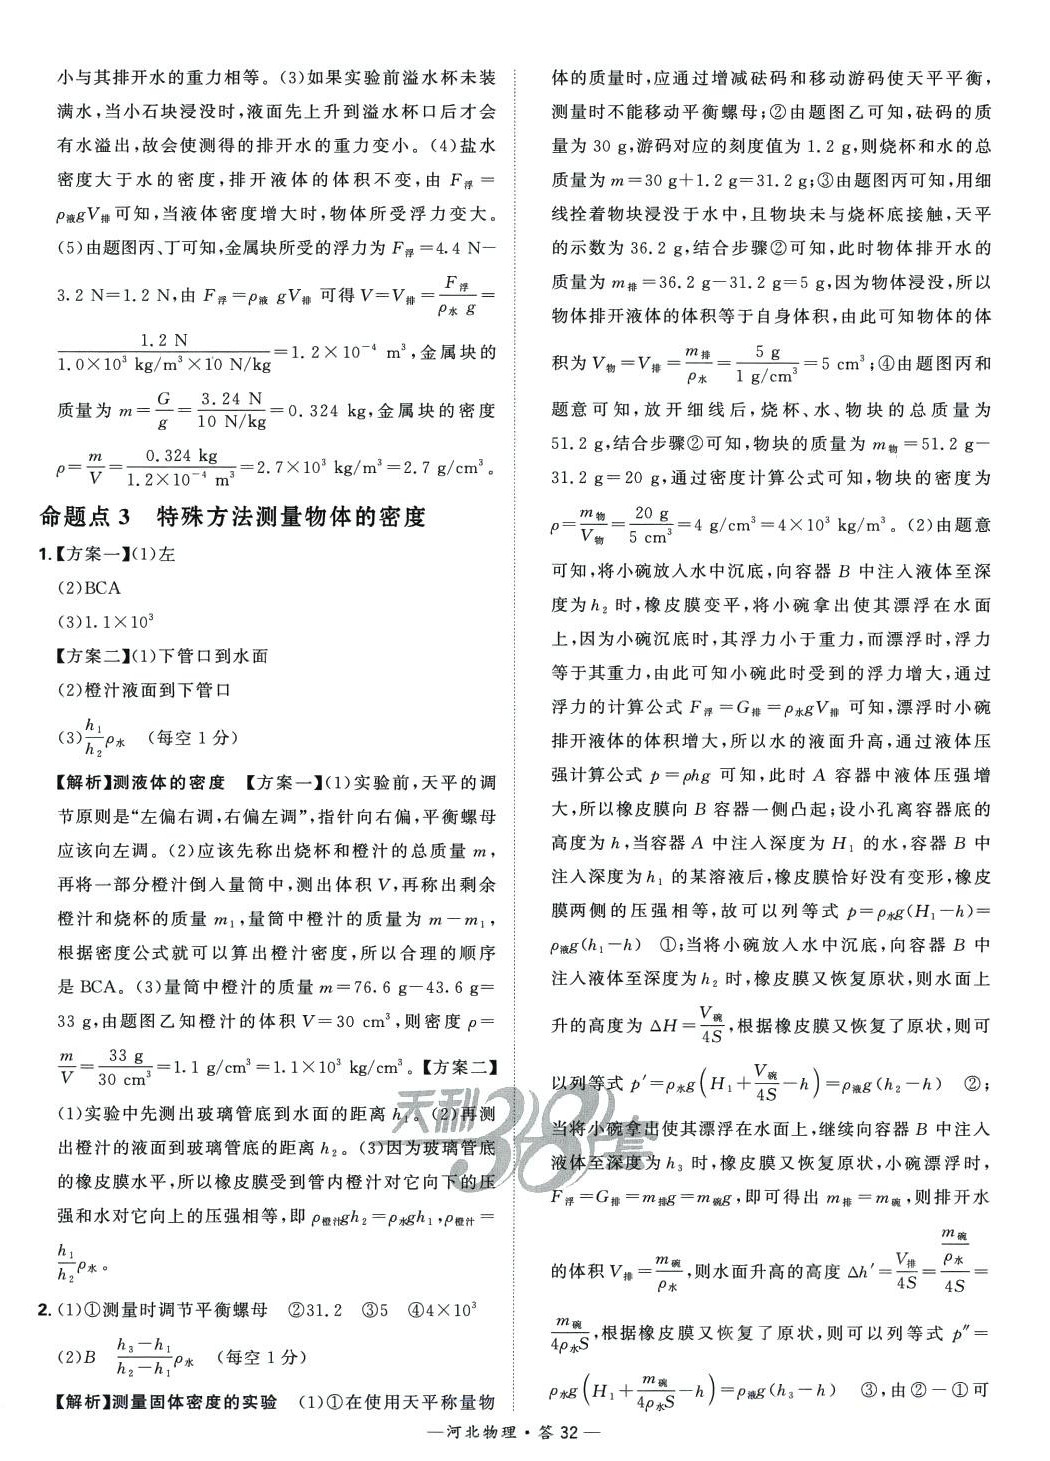 小与其排开水的重力相等。(3)如果实验前溢水杯未装
满水,当小石块浸没时,液面先上升到溢水杯口后才会
有水溢出,故会使测得的排开水的重力变小。(4)盐水
密度大于水的密度,排开液体的体积不变,由 F浮 =
ρ液gV排 可知,当液体密度增大时,物体所受浮力变大。
(5)由题图丙、丁可知,金属块所受的浮力为 F浮 =4.4 N-
3.2 N=1.2 N,由 F浮 =ρ液 gV排 可得 V=V排 = F浮/(ρ水 g) =
1.2 N/(1.0×10³ kg/m³×10 N/kg) =1.2×10⁻⁴ m³,金属块的
质量为 m= G/g = 3.24 N/(10 N/kg) =0.324 kg,金属块的密度
ρ= m/V = 0.324 kg/(1.2×10⁻⁴ m³) =2.7×10³ kg/m³=2.7 g/cm³。
命题点 3 特殊方法测量物体的密度
1.【方案一】(1)左
(2)BCA
(3)1.1×10³
【方案二】(1)下管口到水面
(2)橙汁液面到下管口
(3) h₁/h₂ ρ水 (每空 1 分)
【解析】测液体的密度 【方案一】(1)实验前,天平的调
节原则是“左偏右调,右偏左调”,指针向右偏,平衡螺母
应该向左调。(2)应该先称出烧杯和橙汁的总质量 m,
再将一部分橙汁倒入量筒中,测出体积 V,再称出剩余
橙汁和烧杯的质量 m₁,量筒中橙汁的质量为 m-m₁,
根据密度公式就可以算出橙汁密度,所以合理的顺序
是 BCA。(3)量筒中橙汁的质量 m=76.6 g-43.6 g=
33 g,由题图乙知橙汁的体积 V=30 cm³,则密度 ρ=
m/V = 33 g/30 cm³ =1.1 g/cm³=1.1×10³ kg/cm³。【方案二】
(1)实验中先测出玻璃管底到水面的距离 h₁。(2)再测
出橙汁的液面到玻璃管底的距离 h₂。(3)因为玻璃管底
的橡皮膜水平,所以橡皮膜受到管内橙汁对它向下的压
强和水对它向上的压强相等,即 ρ橙汁gh₂=ρ水gh₁,ρ橙汁 =
h₁/h₂ ρ水。
2.(1)①测量时调节平衡螺母 ②31.2 ③5 ④4×10³
(2)B (h₃-h₁)/(h₂-h₁) ρ水 (每空 1 分)
【解析】测量固体密度的实验 (1)①在使用天平称量物
体的质量时,应通过增减砝码和移动游码使天平平衡,
测量时不能移动平衡螺母;②由题图乙可知,砝码的质
量为 30 g,游码对应的刻度值为 1.2 g,则烧杯和水的总
质量为 m=30 g+1.2 g=31.2 g;③由题图丙可知,用细
线拴着物块浸没于水中,且物块未与烧杯底接触,天平
的示数为 36.2 g,结合步骤②可知,此时物体排开水的
质量为 m排 =36.2 g-31.2 g=5 g,因为物体浸没,所以
物体排开液体的体积等于自身体积,由此可知物体的体
积为 V物 =V排 = m排/ρ水 = 5 g/(1 g/cm³) =5 cm³;④由题图丙和
题意可知,放开细线后,烧杯、水、物块的总质量为
51.2 g,结合步骤②可知,物块的质量为 m物 =51.2 g-
31.2 g=20 g,通过密度计算公式可知,物块的密度为
ρ= m物/V物 = 20 g/5 cm³ =4 g/cm³=4×10³ kg/m³。(2)由题意
可知,将小碗放入水中沉底,向容器 B 中注入液体至深
度为h₂ 时,橡皮膜变平,将小碗拿出使其漂浮在水面
上,因为小碗沉底时,其浮力小于重力,而漂浮时,浮力
等于其重力,由此可知小碗此时受到的浮力增大,通过
浮力的计算公式 F浮 =G排 =ρ水gV排 可知,漂浮时小碗
排开液体的体积增大,所以水的液面升高,通过液体压
强计算公式 p=ρhg 可知,此时 A 容器中液体压强增
大,所以橡皮膜向 B 容器一侧凸起;设小孔离容器底的
高度为 h,当容器 A 中注入深度为 H₁ 的水,容器 B 中
注入深度为h₁ 的某溶液后,橡皮膜恰好没有变形,橡皮
膜两侧的压强相等,故可以列等式 p=ρ水g(H₁-h)=
ρ液g(h₁-h) ①;当将小碗放入水中沉底,向容器 B 中
注入液体至深度为h₂ 时,橡皮膜又恢复原状,则水面上
升的高度为 ΔH= V碗/4S ,根据橡皮膜又恢复了原状,则可
以列等式 p′=ρ水g(H₁+ V碗/4S -h)=ρ液g(h₂-h) ②;
当将小碗拿出使其漂浮在水面上,继续向容器 B 中注入
液体至深度为h₃ 时,橡皮膜又恢复原状,小碗漂浮时,
F浮 =G排 =m排g=m碗g,即可得出 m排 =m碗,则排开水
的体积 V排 = m碗/ρ水 ,则水面升高的高度 Δh′= V排/4S = (m碗/ρ水)/4S =
m碗/(4ρ水S) ,根据橡皮膜又恢复了原状,则可以列等式 p″=
ρ水g(H₁+ m碗/(4ρ水S) -h)=ρ液g(h₃-h) ③,由②-①可
天利38套
—河北物理·答 32—